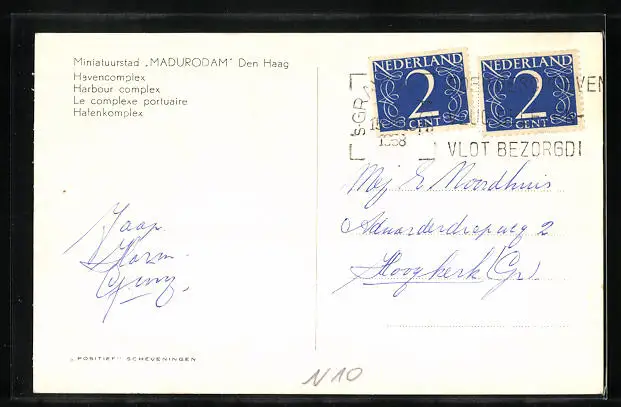 Miniatuurstad „MADURODAM" Den Haag
Havencomplex
Harbour complex
Le complexe portuaire
Hafenkomplex
NEDERLAND
2
CENT
NEDERLAND
2
CENT
1958
VLOT BEZORGD!
Mej E Noordhuis
2
Hoogkerk (Gr)
Jaap
Harm
„POSITIEF" SCHEVENINGEN
N10